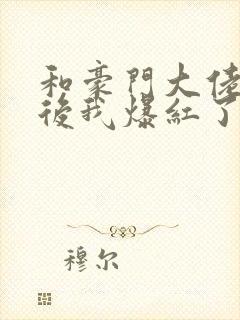 和豪門大佬
後我爆紅了
穆尔